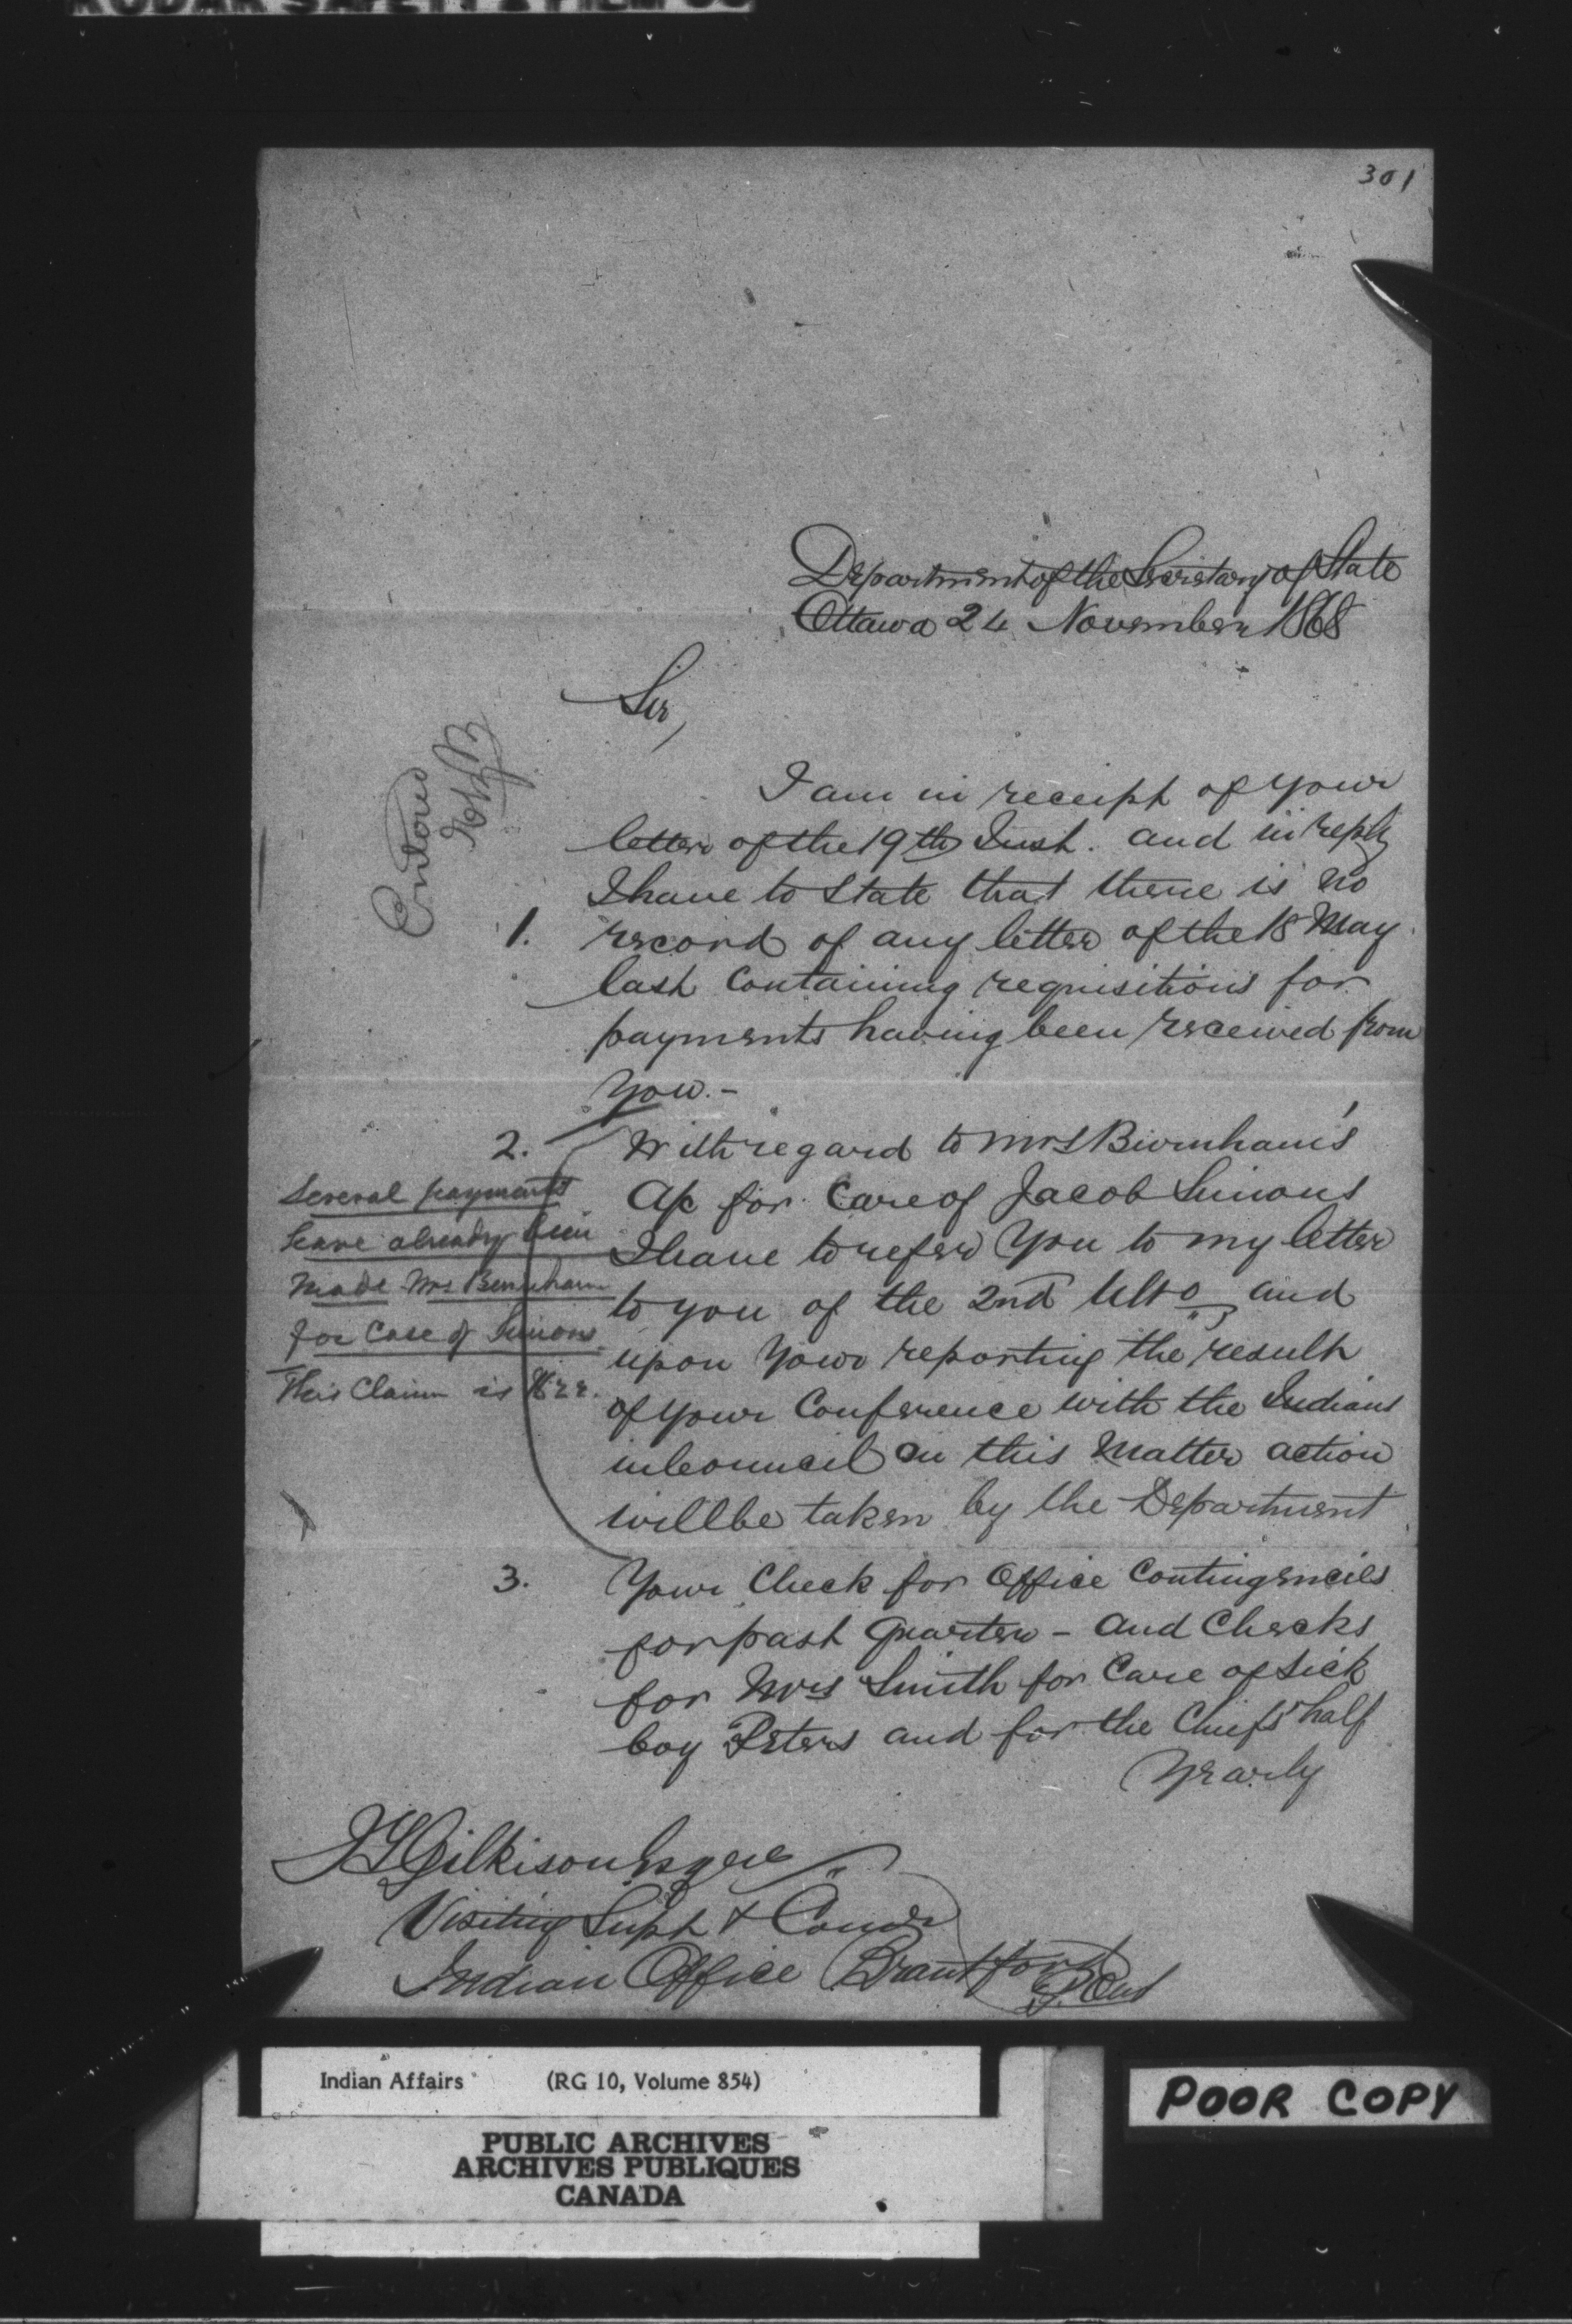 KODAK SAFETY FILM
301
Department of the Secretary of State
Ottawa 24 November 1868
Sir,
I am in receipt of your
letter of the 19th Inst. and in reply
I have to State that there is no
1. record of any letter of the 18 May
last Containing requisitions for
payments having been received from
you.-
2. With regard to Mrs Birnham's
A/c for Care of Jacob Simons
I have to refer You to my letter
to you of the 2nd Ulto and
upon Your reporting the result
of your Conference with the Indians
in Council on this Matter action
will be taken by the Department
3. Your Check for Office Contingencies
for past Quarter - and Checks
for Mrs Smith for Care of Sick
boy Peters and for the Chiefs' half
Yearly
Several payments
have already been
made Mrs Burnham
for Care of Simons
This Claim is
JT Gilkison Esquire
Visiting Supt & Comr
Indian Office Brantford
Ont
Indian Affairs (RG 10, Volume 854)
PUBLIC ARCHIVES
ARCHIVES PUBLIQUES
CANADA
POOR COPY